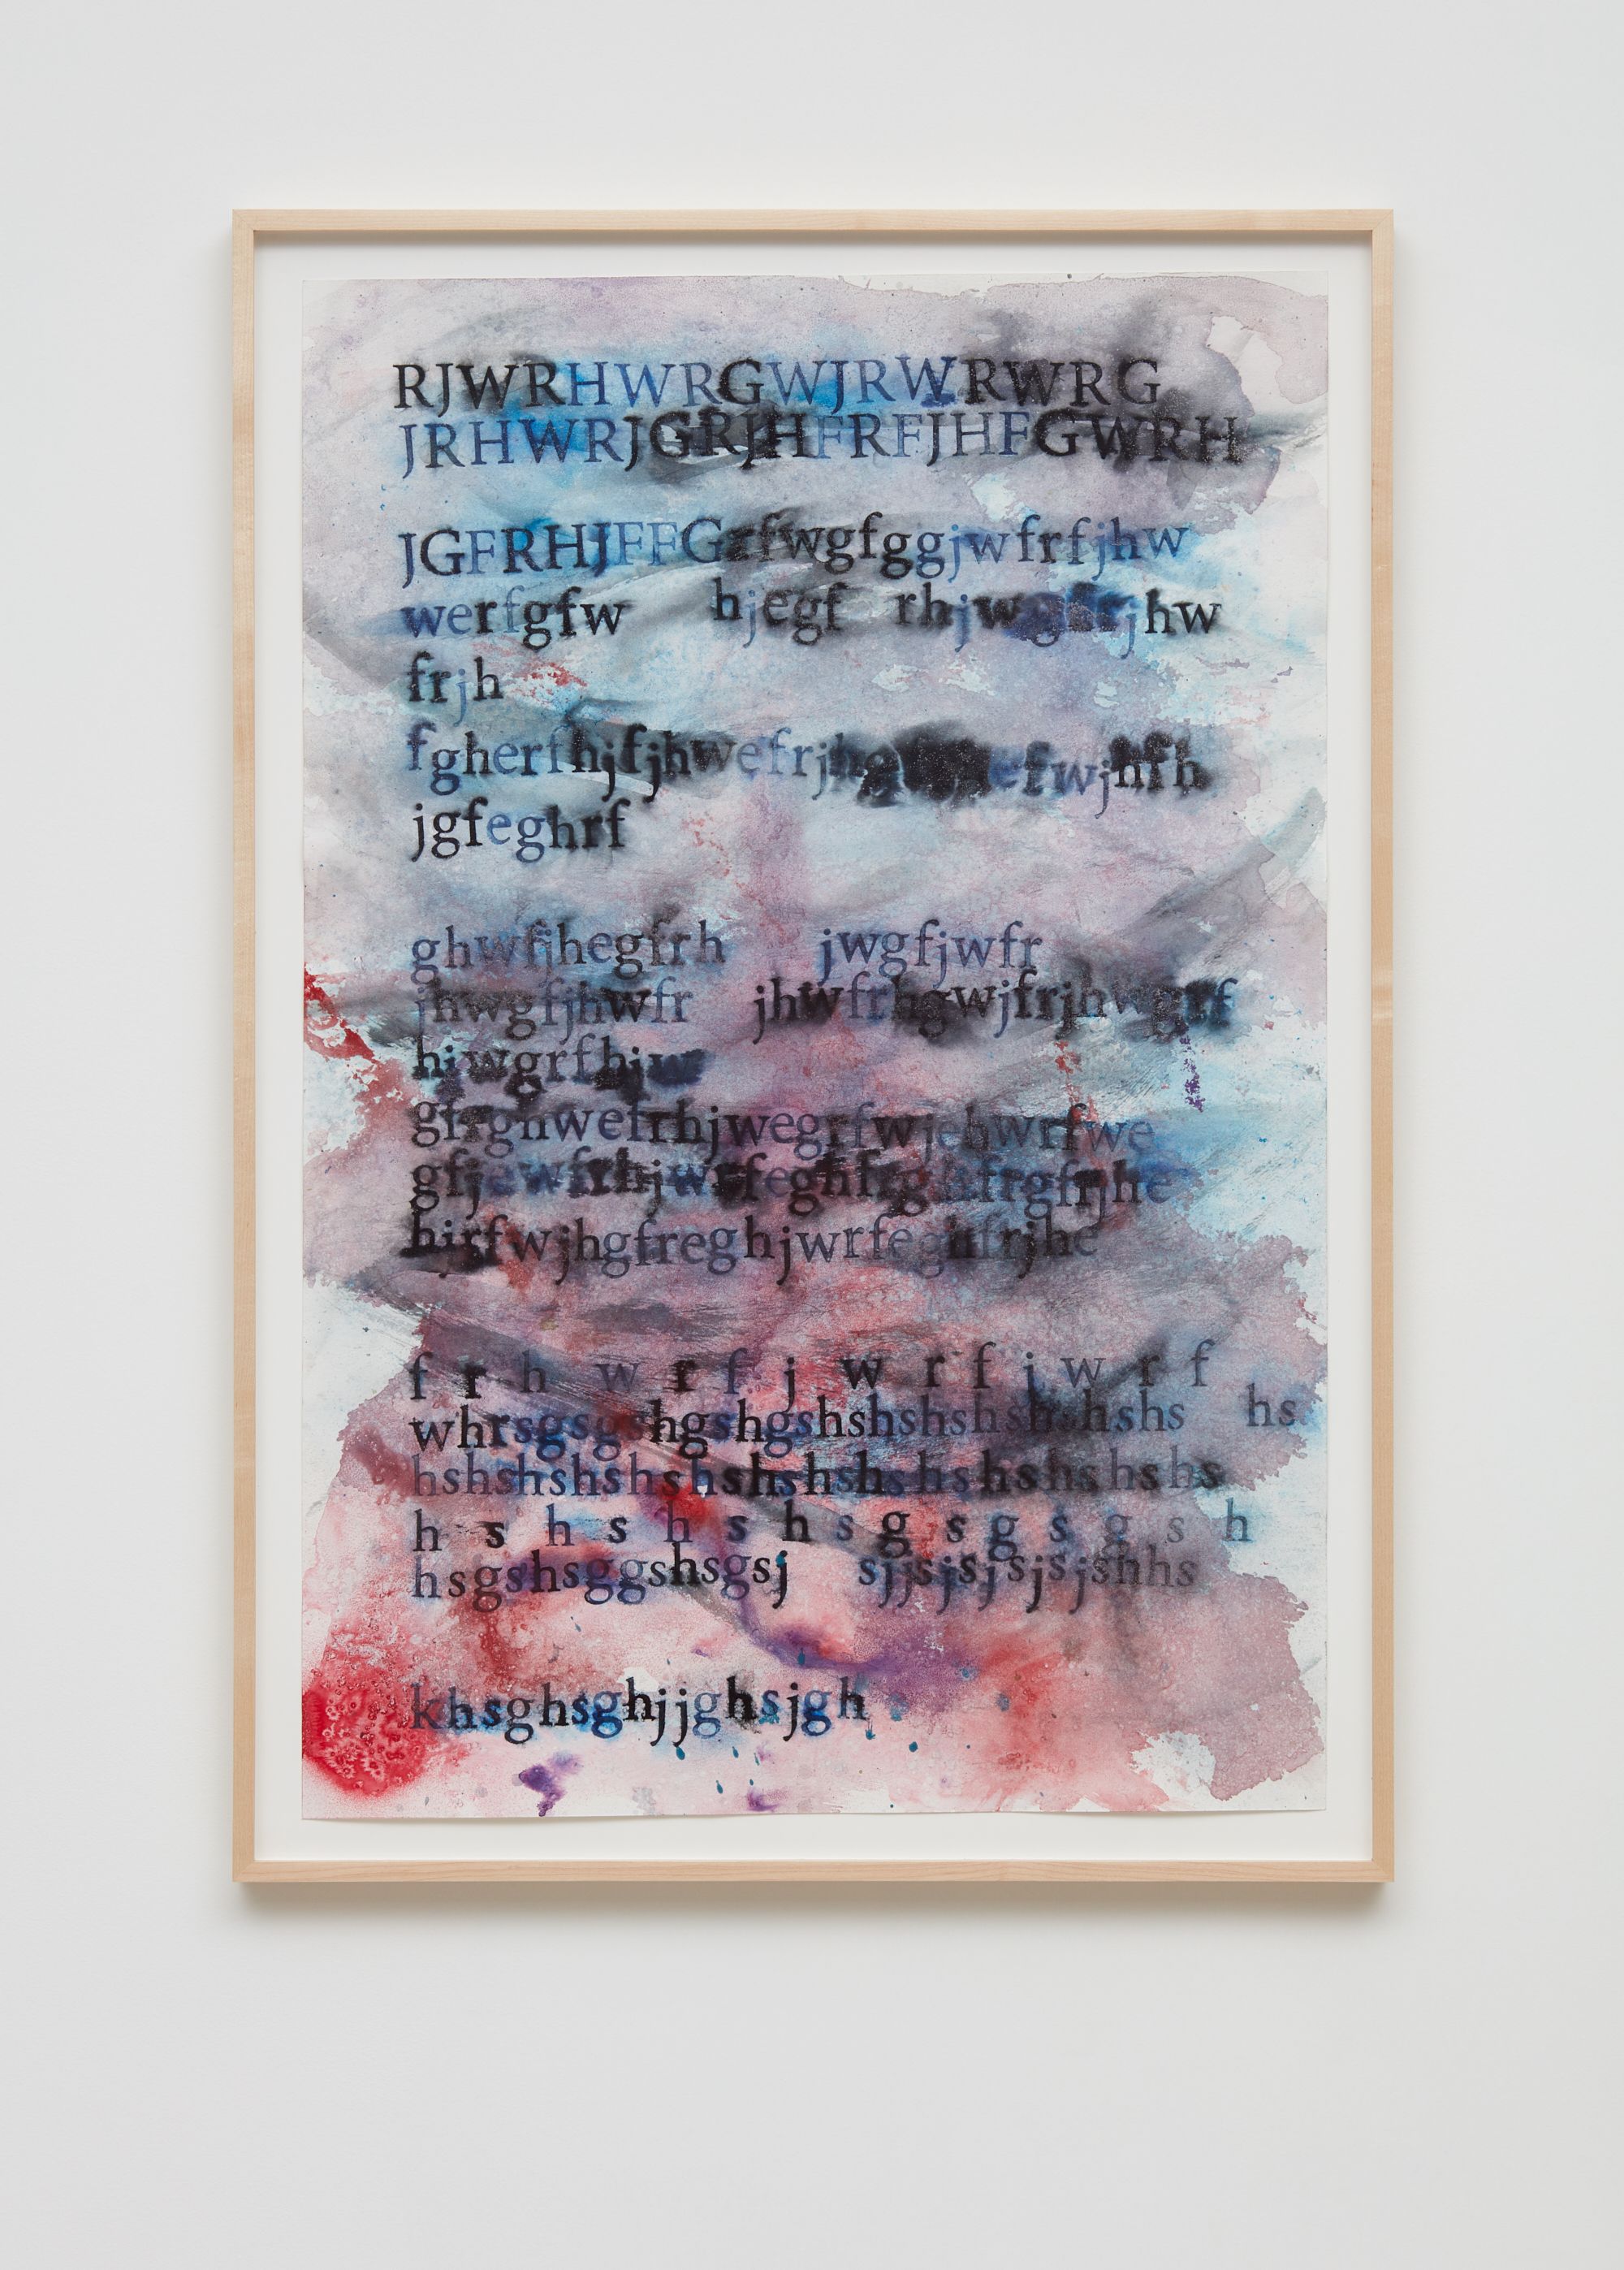 RJWRHWRGWJRWRWRG
JRHWRJGRJHFRFJHFGWRH
JGFRHJFFGrfwgfggjwfrfjhw
werfgfw hjegf rhjwgfrjhw
frjh
jgfeghrf
ghwfjhegfrh jwgfjwfr
jhwgfjhwfr jhwfrhgwjfrjhwgrf
hjwgrfhjw
gfrghwefrhjwegrfwjehwrfwe
hjrfwjhgfreghjwrfeghfrjhe
f r h w r f j w r f j w r f
whrsgsgshgshgshshshshshshs hs
hshshshshshshshshshshshs
h s h s h s h s g s g s g s h
hsgshsggshsgsj sjjsjsjsjsjshhs
khsghsghjjghsjgh